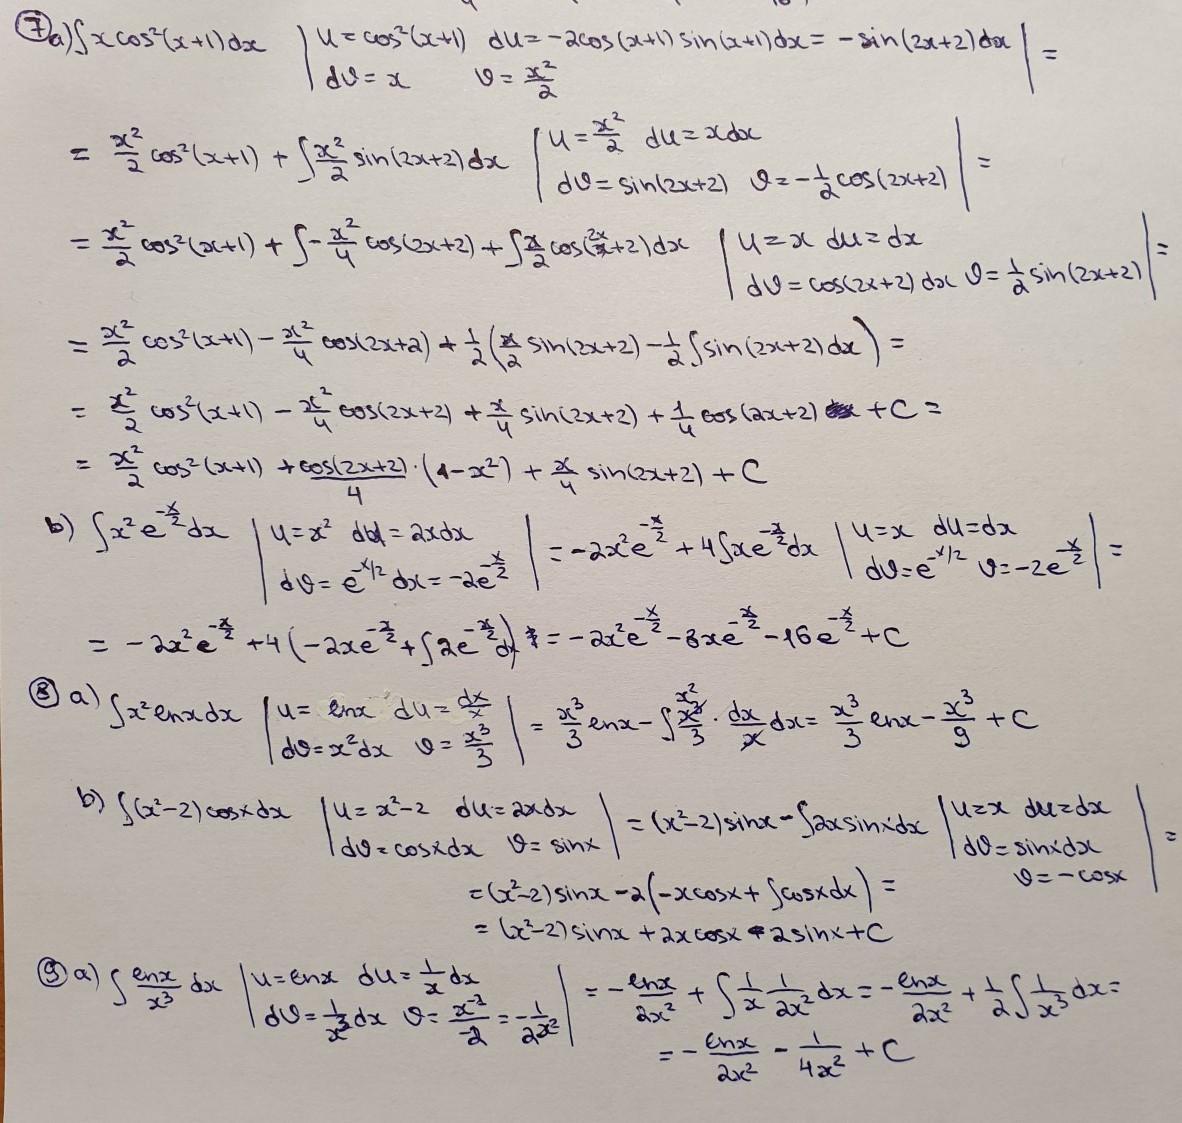 ⑦a) ∫x cos²(x+1)dx | u = cos²(x+1) du = -2cos(x+1)sin(x+1)dx = -sin(2x+2)dx | =
dv = x v = x²/2
= x²/2 cos²(x+1) + ∫x²/2 sin(2x+2)dx | u = x²/2 du = xdx
dv = sin(2x+2) v = -1/2 cos(2x+2) | =
= x²/2 cos²(x+1) + ∫-x²/4 cos(2x+2) + ∫x/2 cos(2x+2)dx | u = x du = dx
dv = cos(2x+2)dx v = 1/2 sin(2x+2) | =
= x²/2 cos²(x+1) - x²/4 cos(2x+2) + 1/2 (x/2 sin(2x+2) - 1/2 ∫sin(2x+2)dx) =
= x²/2 cos²(x+1) - x²/4 cos(2x+2) + x/4 sin(2x+2) + 1/4 cos(2x+2) + C =
= x²/2 cos²(x+1) + cos(2x+2)/4 · (1-x²) + x/4 sin(2x+2) + C
b) ∫x²e^(-x/2)dx | u = x² du = 2xdx | = -2x²e^(-x/2) + 4∫xe^(-x/2)dx | u = x du = dx | =
dv = e^(-x/2)dx = -2e^(-x/2) dv = e^(-x/2) v = -2e^(-x/2)
= -2x²e^(-x/2) + 4(-2xe^(-x/2) + ∫2e^(-x/2)dx) = -2x²e^(-x/2) - 8xe^(-x/2) - 16e^(-x/2) + C
⑧ a) ∫x² lnx dx | u = lnx du = dx/x | = x³/3 lnx - ∫x³/3 · dx/x dx = x³/3 lnx - x³/9 + C
dv = x²dx v = x³/3
b) ∫(x²-2)cosxdx | u = x²-2 du = 2xdx | = (x²-2)sinx - ∫2xsinxdx | u = x du = dx | =
dv = cosxdx v = sinx dv = sinxdx
v = -cosx
= (x²-2)sinx - 2(-xcosx + ∫cosxdx) =
= (x²-2)sinx + 2xcosx - 2sinx + C
⑨ a) ∫lnx/x³ dx | u = lnx du = 1/x dx | = -lnx/2x² + ∫1/x 1/2x² dx = -lnx/2x² + 1/2 ∫1/x³ dx =
dv = 1/x³ dx v = x⁻²/-2 = -1/2x²
= -lnx/2x² - 1/4x² + C